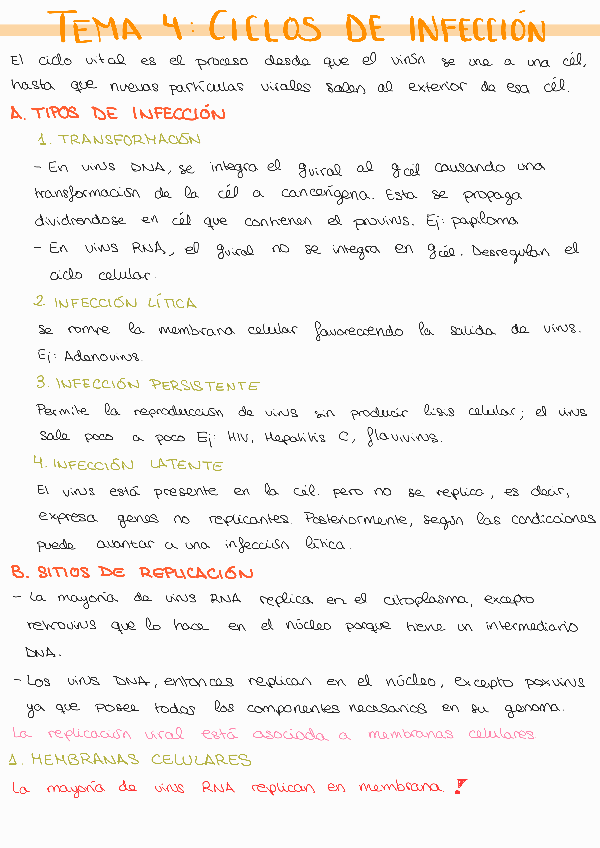 TEMA 4: CICLOS DE INFECCIÓN
El ciclo vital es el proceso desde que el virión se une a una cél,
hasta que nuevas partículas virales salen al exterior de esa cél.
A. TIPOS DE INFECCIÓN
1. TRANSFORMACIÓN
- En virus DNA, se integra el gviral al gcél causando una
transformación de la cél a cancerígena. Esta se propaga
dividiendose en cél que contienen el provirus. Ej: papiloma
- En virus RNA, el gviral no se integra en gcél. Desregulan el
ciclo celular.
2. INFECCIÓN LÍTICA
Se rompe la membrana celular favoreciendo la salida de virus.
Ej: Adenovirus.
3. INFECCIÓN PERSISTENTE
Permite la reproducción de virus sin producir lisis celular; el virus
sale poco a poco Ej: HIV, Hepatitis C, flavivirus.
4. INFECCIÓN LATENTE
El virus está presente en la cél. pero no se replica, es decir,
expresa genes no replicantes. Posteriormente, según las condiciones
puede avanzar a una infección lítica.
B. SITIOS DE REPLICACIÓN
- La mayoría de virus RNA replica en el citoplasma, excepto
retrovirus que lo hace en el núcleo porque tiene un intermediario
DNA.
- Los virus DNA, entonces replican en el núcleo, excepto poxvirus
ya que posee todos los componentes necesarios en su genoma.
La replicación viral está asociada a membranas celulares
1. MEMBRANAS CELULARES
La mayoría de virus RNA replican en membrana. !